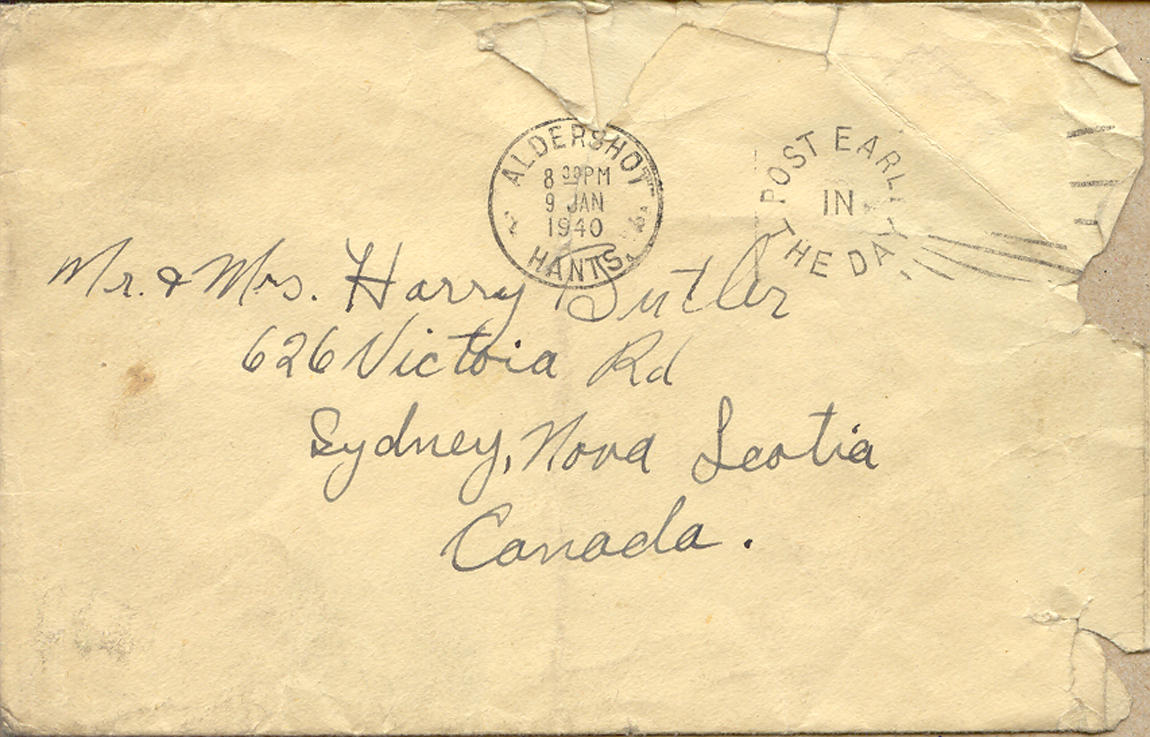 ALDERSHOT
8 30 PM
9 JAN
1940
HANTS.
POST EARLY
IN
THE DAY
Mr. & Mrs. Harry Butler
626 Victoia Rd
Sydney, Nova Scotia
Canada.